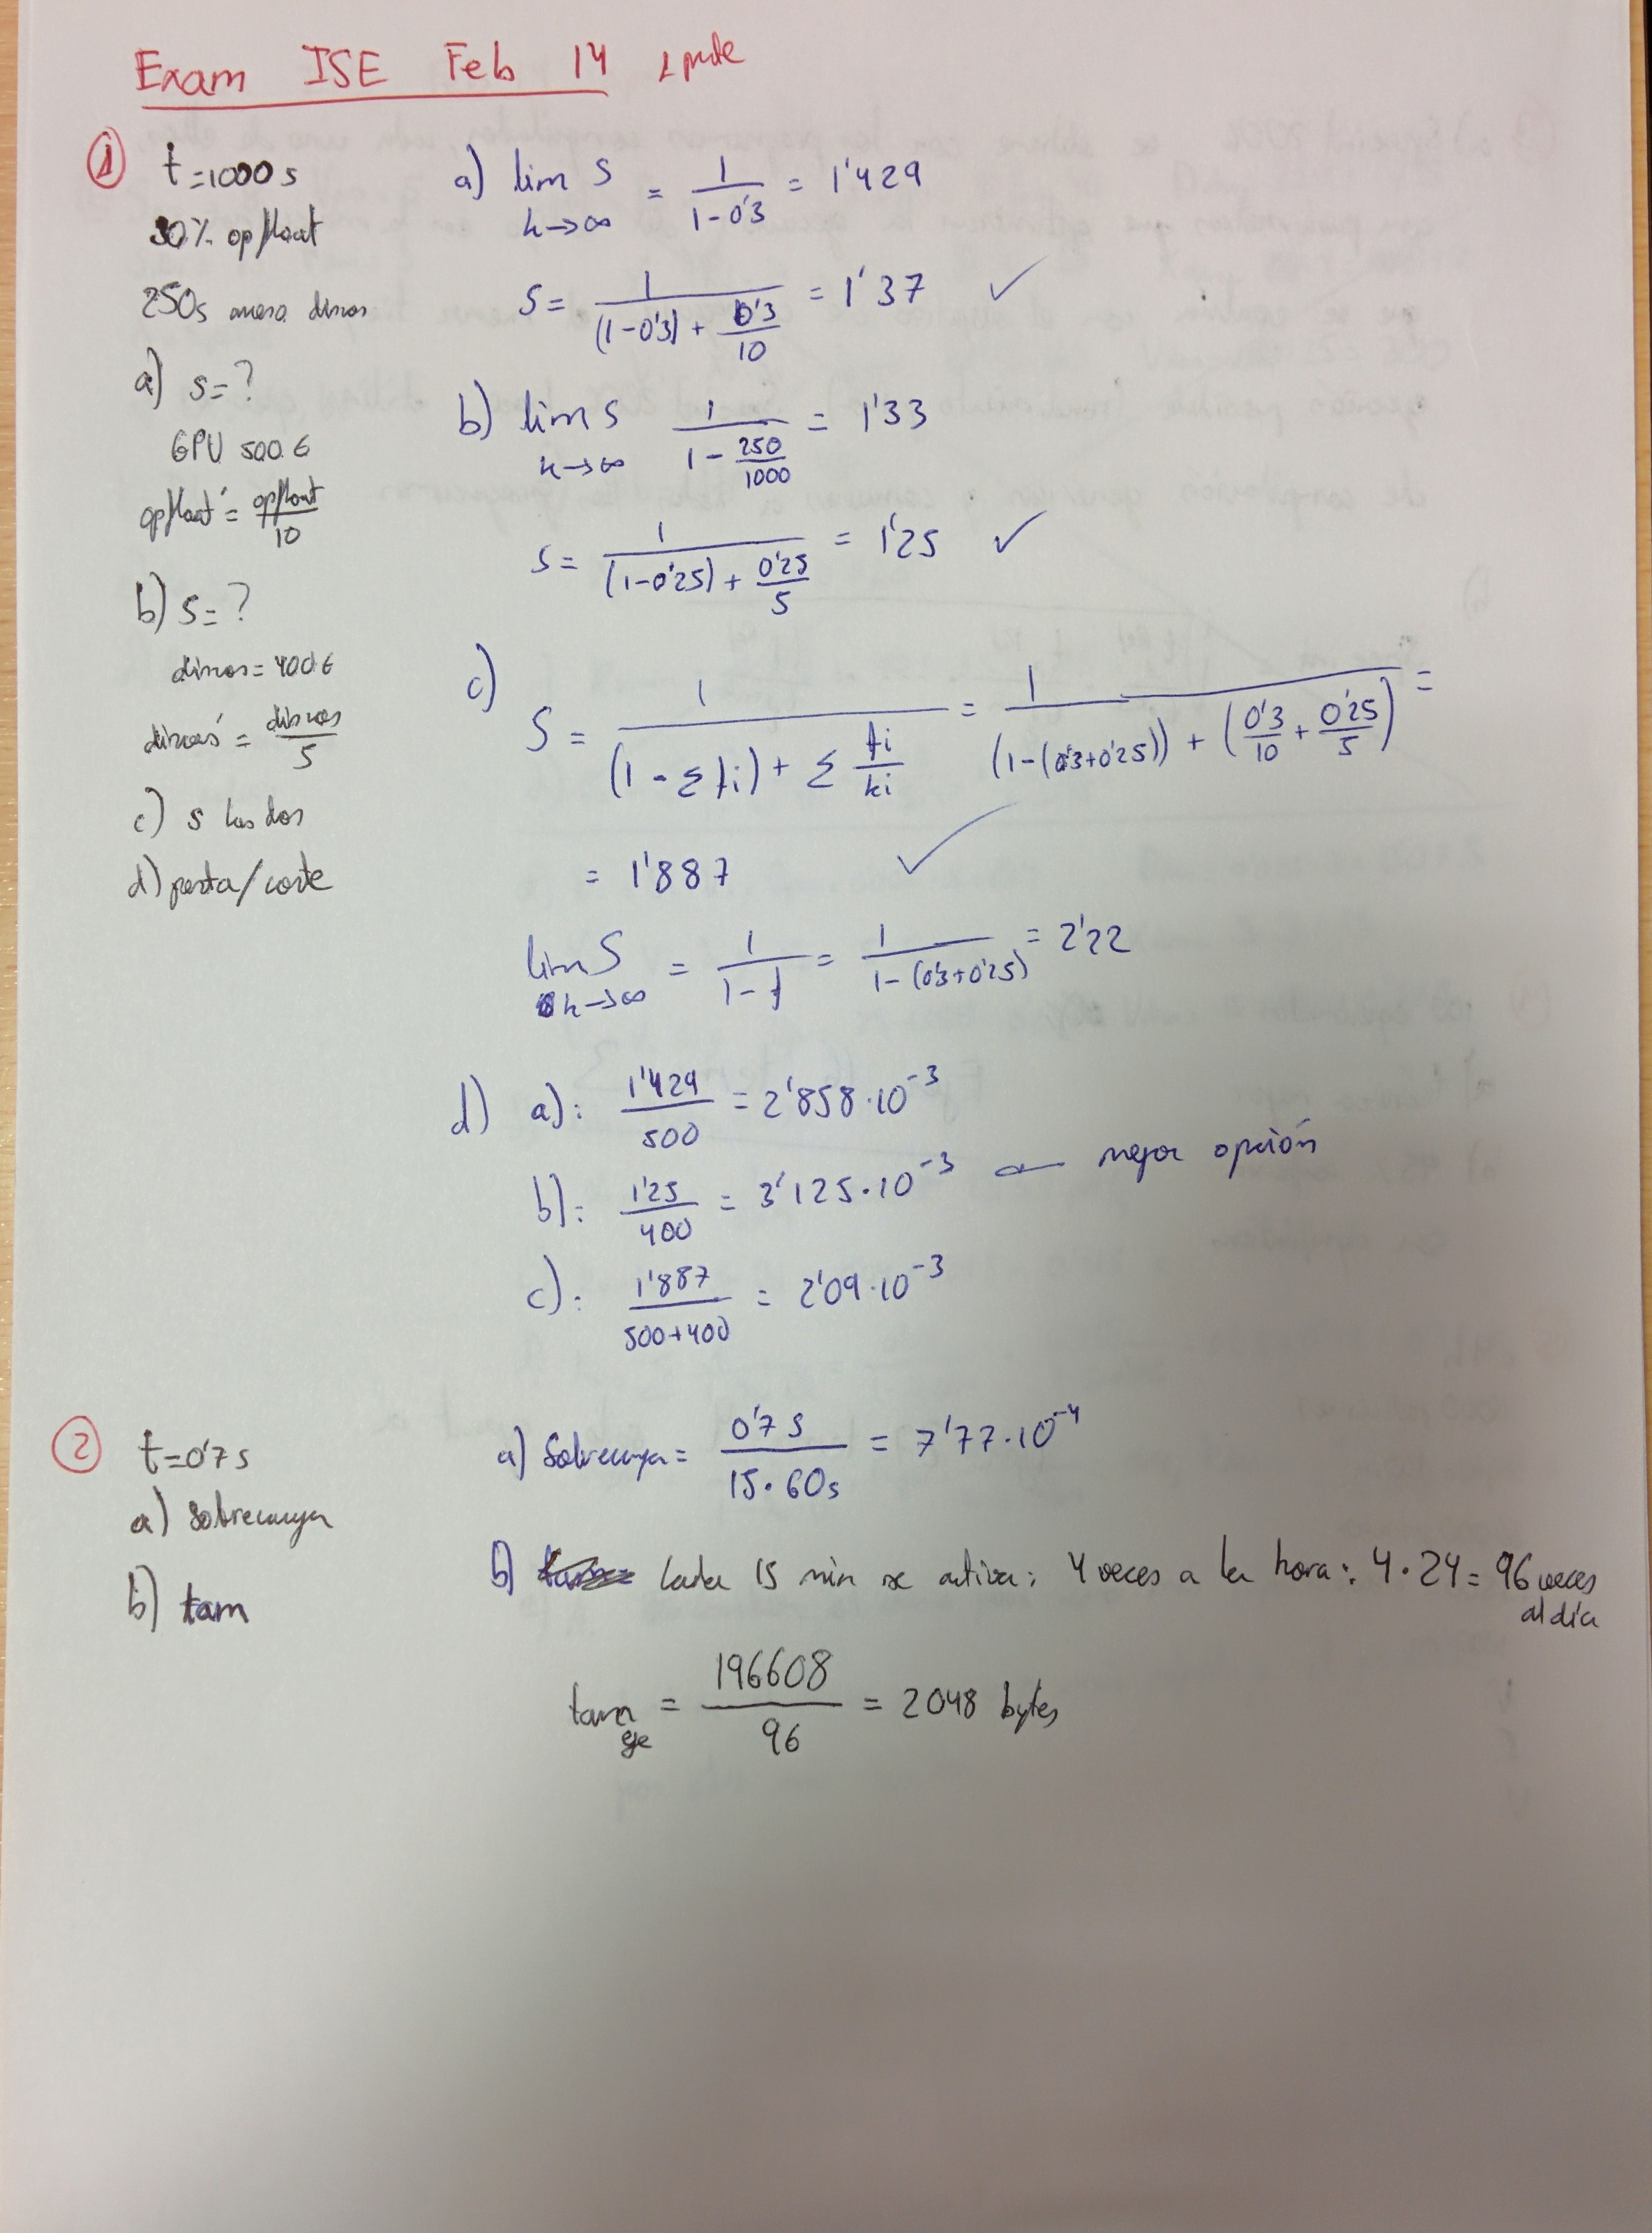 Exam ISE Feb 14 1 parte
① t=1000 s
30% opfloat
250s acceso discos
a) s=?
GPU 500€
opfloat' = opfloat/10
b) s=?
discos=400€
discos' = discos/5
c) s las dos
d) presta/coste
a) lim S k→∞ = 1/(1-0'3) = 1'429
S = 1/((1-0'3) + 0'3/10) = 1'37 ✓
b) lim S k→∞ 1/(1 - 250/1000) = 1'33
S = 1/((1-0'25) + 0'25/5) = 1'25 ✓
c) S = 1/((1 - Σfi) + Σ fi/ki) = 1/((1-(0'3+0'25)) + (0'3/10 + 0'25/5)) =
= 1'887 ✓
lim S k→∞ = 1/(1-f) = 1/(1-(0'3+0'25)) = 2'22
d) a): 1'429/500 = 2'858·10⁻³
b): 1'25/400 = 3'125·10⁻³ ← mejor opción
c): 1'887/(500+400) = 2'09·10⁻³
② t=0'7s
a) Sobrecarga
b) tam
a) Sobrecarga = 0'7 s/(15·60s) = 7'77·10⁻⁴
b) Cada 15 min se activa: 4 veces a la hora: 4·24 = 96 veces al día
tam eje = 196608/96 = 2048 bytes